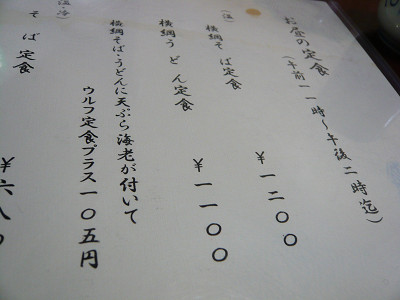 お昼の定食(午前一一時～午後二時迄)
(温)横綱そば定食 ¥一二〇〇
横綱うどん定食 ¥一一〇〇
横綱そば・うどんに天ぷら海老が付いて
ウルフ定食プラス一〇五円
(温・冷)
そば定食 ¥六八〇